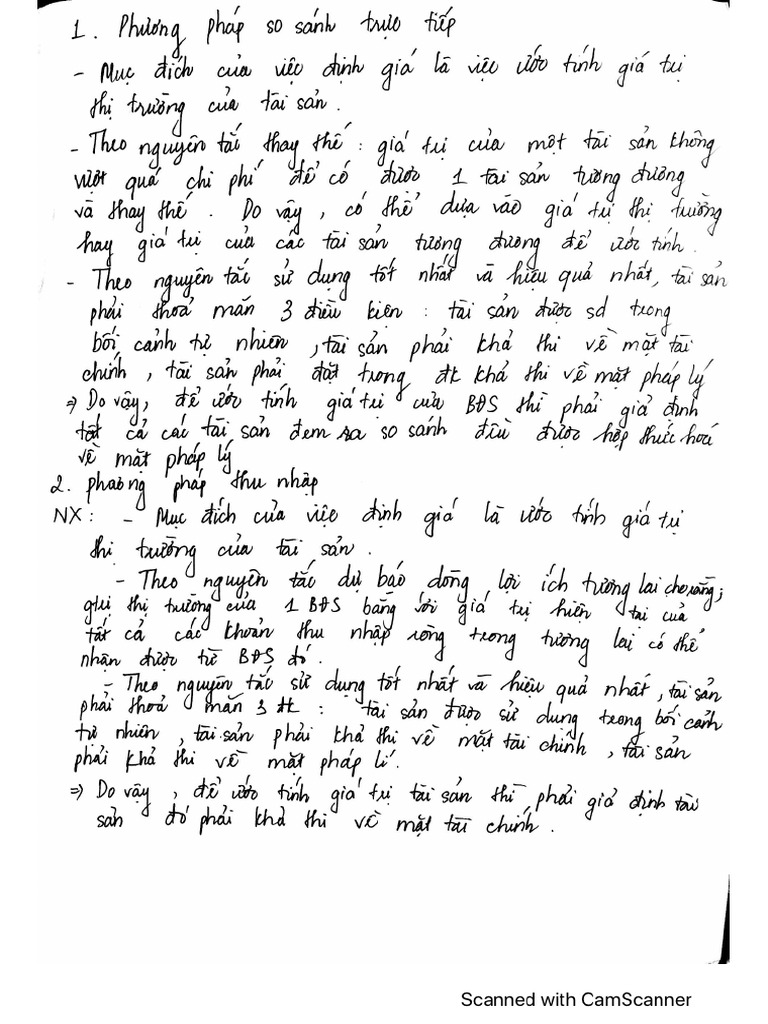 1. Phương pháp so sánh trực tiếp
- Mục đích của việc định giá là việc ước tính giá trị
thị trường của tài sản.
- Theo nguyên tắc thay thế : giá trị của một tài sản không
vượt quá chi phí để có được 1 tài sản tương đương
và thay thế. Do vậy, có thể dựa vào giá trị thị trường
hay giá trị của các tài sản tương đương để ước tính.
- Theo nguyên tắc sử dụng tốt nhất và hiệu quả nhất, tài sản
phải thoả mãn 3 điều kiện : tài sản được sd trong
bối cảnh tự nhiên, tài sản phải khả thi về mặt tài
chính, tài sản phải đặt trong đk khả thi về mặt pháp lý
⇒ Do vậy, để ước tính giá trị của BĐS thì phải giả định
tất cả các tài sản đem so sánh đều được hợp thức hoá
về mặt pháp lý
2. phương pháp thu nhập
NX : - Mục đích của việc định giá là ước tính giá trị
thị trường của tài sản.
- Theo nguyên tắc dự báo dòng lợi ích tương lai cho rằng;
gtrị thị trường của 1 BĐS bằng với giá trị hiện tại của
tất cả các khoản thu nhập ròng trong tương lai có thể
nhận được từ BĐS đó.
- Theo nguyên tắc sử dụng tốt nhất và hiệu quả nhất, tài sản
phải thoả mãn 3 đk : tài sản được sử dụng trong bối cảnh
tự nhiên, tài sản phải khả thi về mặt tài chính, tài sản
phải khả thi về mặt pháp lí.
⇒ Do vậy, để ước tính giá trị tài sản thì phải giả định tài
sản đó phải khả thi về mặt tài chính.
Scanned with CamScanner